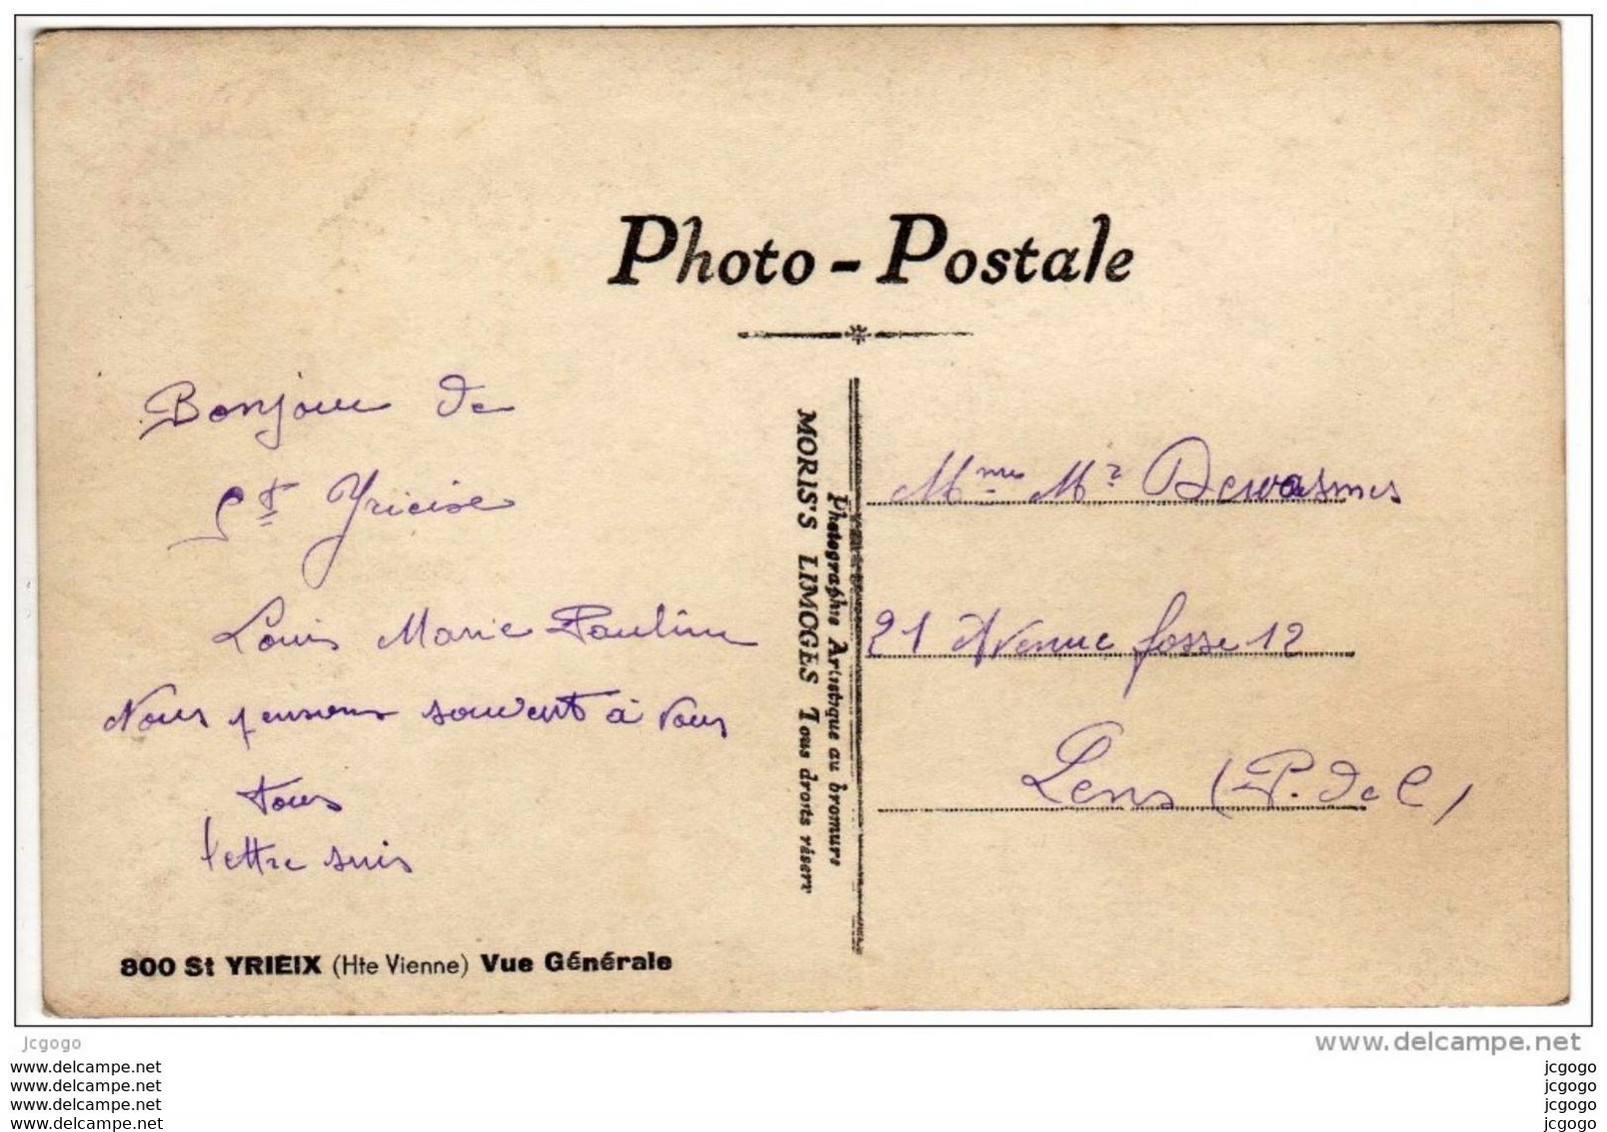 Photo - Postale
Bonjour de
St Yrieix
Louis Marie Pauline
Nous pensons souvent à vous
tous
lettre suis
800 St YRIEIX (Hte Vienne) Vue Générale
Photographie Artistique au bromure
MORIS'S LIMOGES Tous droits réserv
Mme Mr Dewasmes
21 Avenue fosse 12
Lens (P. de C)
Jcgogo
www.delcampe.net
www.delcampe.net
www.delcampe.net
www.delcampe.net
www.delcampe.net
jcgogo
jcgogo
jcgogo
jcgogo